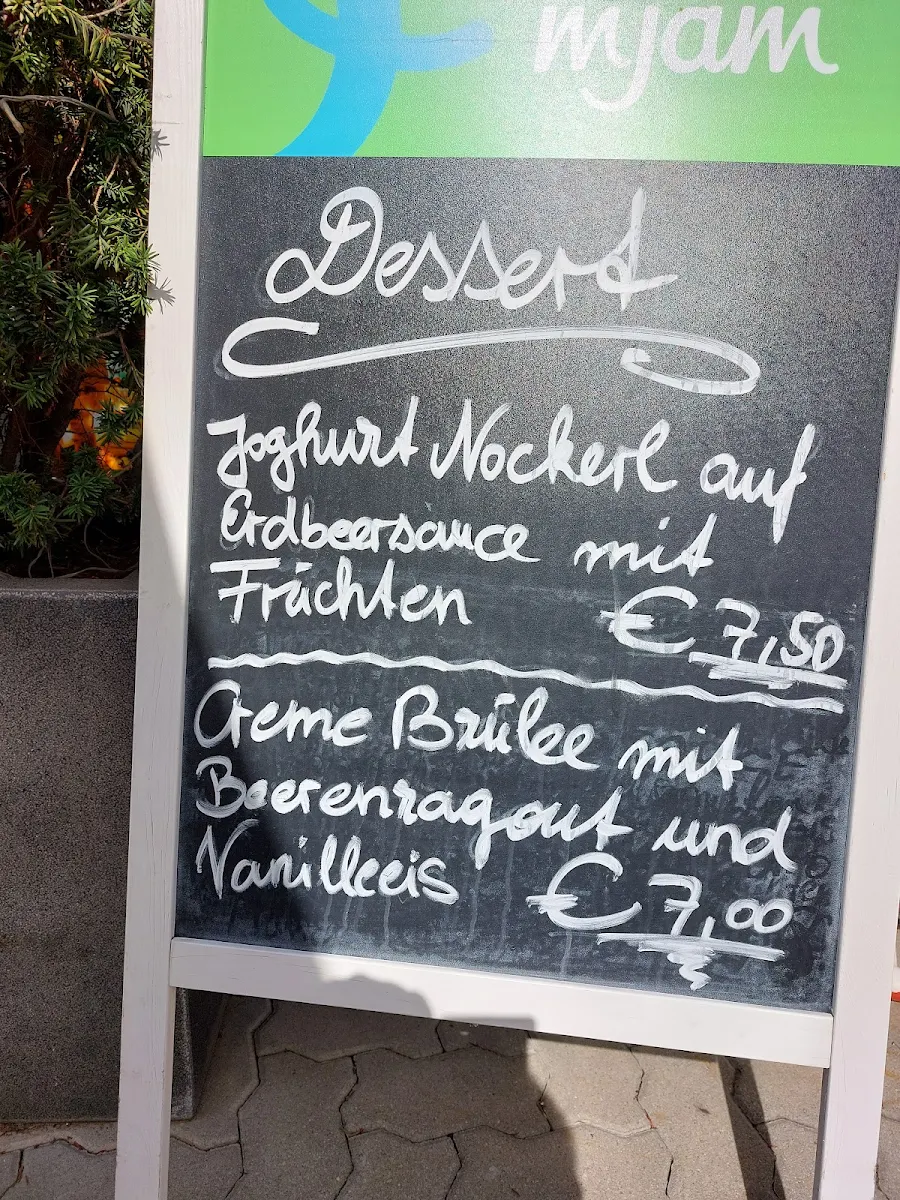 mjam
Dessert
Joghurt Nockerl auf
Erdbeersauce mit
Früchten € 7,50
Creme Brülee mit
Beerenragout und
Vanilleeis € 7,00